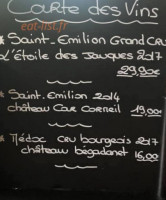 Carte des Vins
eat-list.fr
* Saint-Emilion Grand Cru
L'Étoile des Jauques 2017
29,90€
* Saint-Emilion 2014
château Cap Corneil 19,00€
* Médoc CRU bourgeois 2017
château bégadanet 16,00